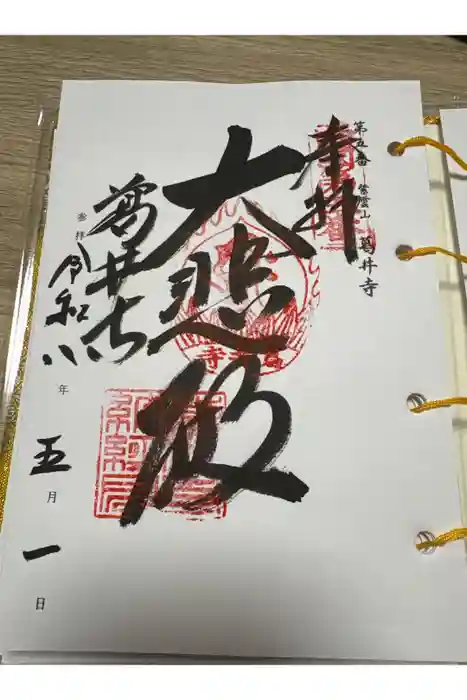 第五番 紫雲山 葛井寺
奉拝
大悲殿
葛井寺
参拝 令和八年五月一日